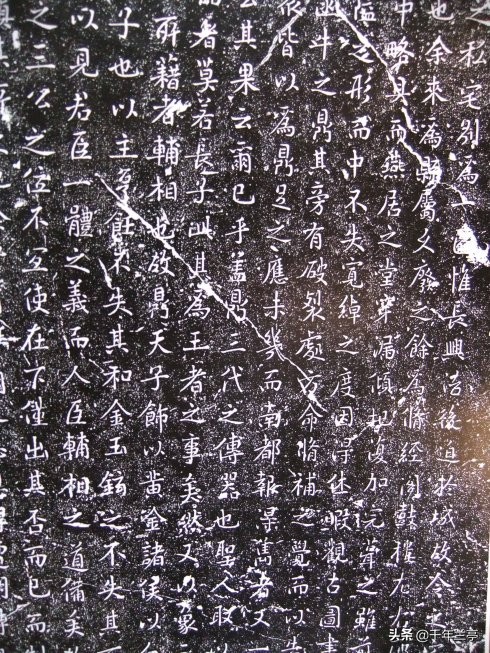 之私宅别為一區惟長興治後迫於城故令之
也余來為縣屬久廢之餘為脩經閣鼓樓
中略具而燕居之堂穿漏傾圮復加完葺之雖
隘之形而中不失寛綽之度因得休暇觀古圖書
函牛之鼎其旁有破裂處方命脩補之覺而以告
皆以為鼎足之應未幾而南都報景雋者又
其果云爾已乎盖鼎三代之傳器也聖人取
器者莫若長子此其為王者之事矣然又以象
所藉者輔相也故鼎天子飾以黄金諸侯以
子也以主亨飪不失其和金玉鉉之不失其
以見君臣一體之義而人臣輔相之道備矣
之三公之位不宜使在下僅出其否而已而
头条@千年兰亭